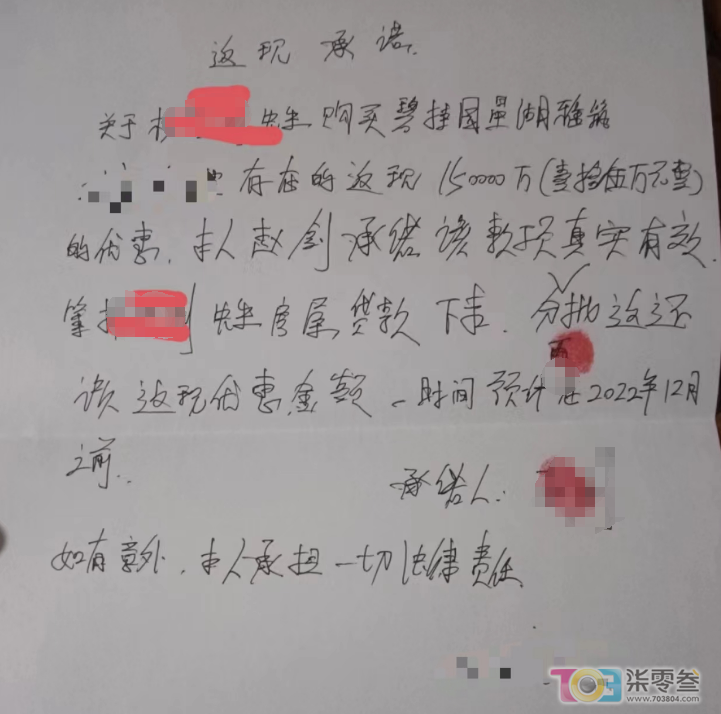 返现承诺.
关于 先生购买碧桂园星湖雅筑
存在的返现150000万(壹拾伍万元整)
的优惠. 本人赵剑承诺该款项真实有效.
等 先生房屋贷款下来. 分批返还
该返现优惠金额. 时间预计 2022年12月
之前.
承诺人:
如有意外, 本人承担一切法律责任
柒零叁
www.703804.com